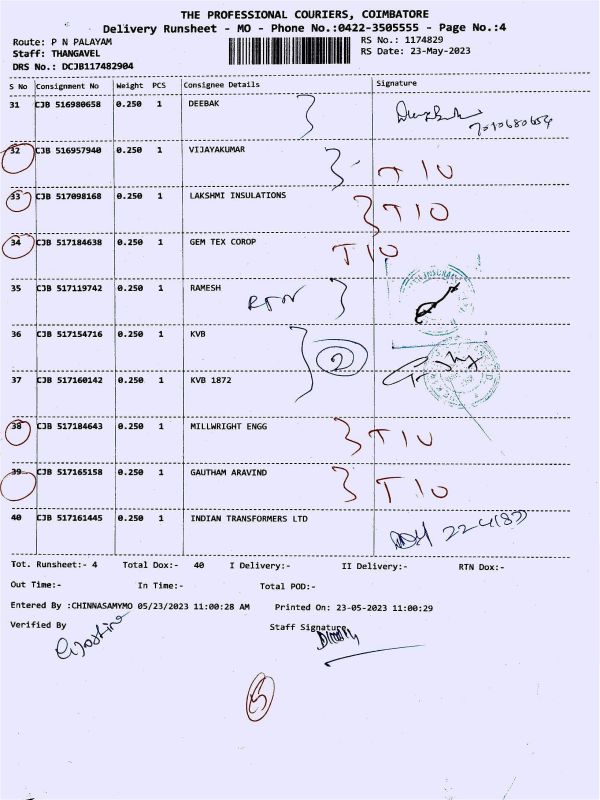 THE PROFESSIONAL COURIERS, COIMBATORE
Delivery Runsheet - MO - Phone No.:0422-3505555 - Page No.:4
Route: P N PALAYAM
Staff: THANGAVEL
DRS No.: DCJB117482904
RS No.: 1174829
RS Date: 23-May-2023
S No Consignment No Weight PCS Consignee Details Signature
31 CJB 516980658 0.250 1 DEEBAK
32 CJB 516957940 0.250 1 VIJAYAKUMAR T10
33 CJB 517098168 0.250 1 LAKSHMI INSULATIONS T10
34 CJB 517184638 0.250 1 GEM TEX COROP T10
35 CJB 517119742 0.250 1 RAMESH
36 CJB 517154716 0.250 1 KVB
2
37 CJB 517160142 0.250 1 KVB 1872
38 CJB 517184643 0.250 1 MILLWRIGHT ENGG T10
39 CJB 517165158 0.250 1 GAUTHAM ARAVIND T10
40 CJB 517161445 0.250 1 INDIAN TRANSFORMERS LTD
Tot. Runsheet:- 4 Total Dox:- 40 I Delivery:- II Delivery:- RTN Dox:-
Out Time:- In Time:- Total POD:-
Entered By :CHINNASAMYMO 05/23/2023 11:00:28 AM Printed On: 23-05-2023 11:00:29
Verified By Staff Signature
5